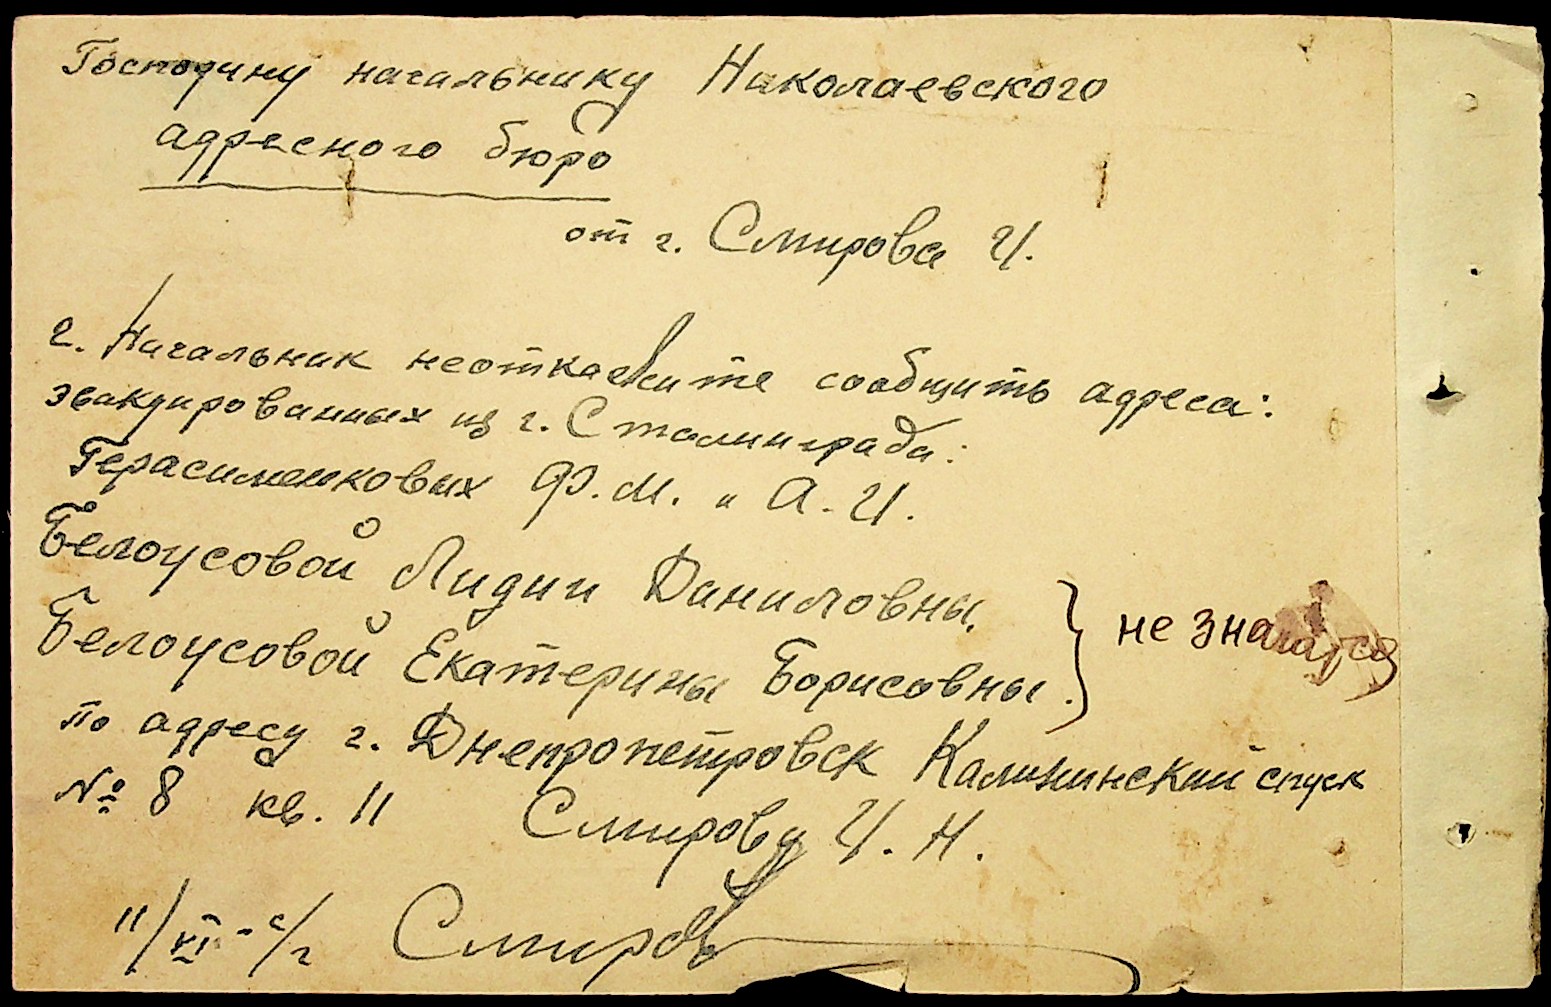 Господину начальнику Николаевского
адресного бюро
от г. Смирова И.
г. Начальник неоткажите сообщить адреса:
эвакуированных из г. Сталинграда:
Герасименковых Ф. М. и А. И.
Белоусовой Лидии Даниловны.
Белоусовой Екатерины Борисовны.
не значатся
по адресу г. Днепропетровск Калининский спуск
№ 8 кв. 11 Смирову И. Н.
11/VI - с/г Смиров